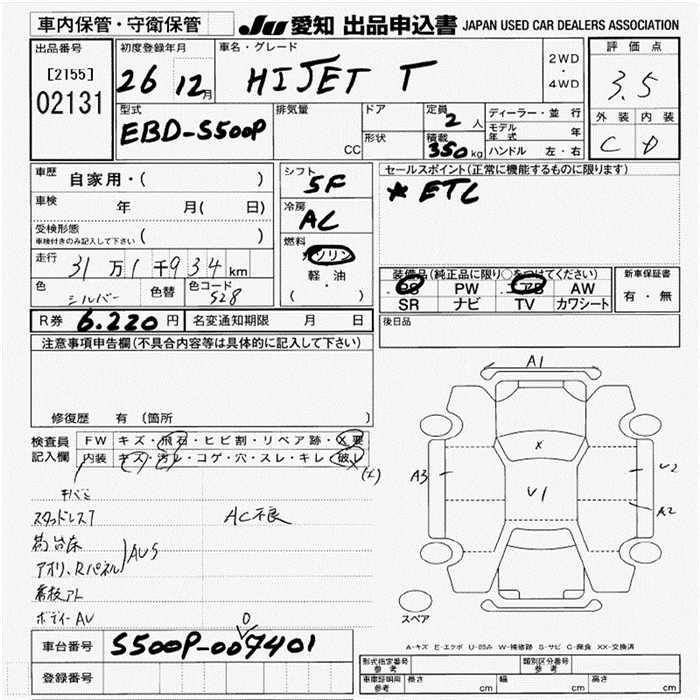 車内保管・守衛保管
JU 愛知 出品申込書 JAPAN USED CAR DEALERS ASSOCIATION
出品番号
[2155]
02131
初度登録年月
26 12月
車名・グレード
HIJET T
2WD
・
4WD
評価点
3.5
外装 内装
C D
型式
EBD-S500P
排気量
CC
ドア
形状
定員
2人
積載
350kg
ディーラー・並行
モデル年式 年
ハンドル 左・右
車歴 自家用・( )
車検 年 月( 日)
受検形態
車検付きのみ記入して下さい ( )
走行 31万1千934km
色 シルバー 色替 色コード S28
シフト
5F
冷房
AC
燃料
ガソリン
軽・油
( )
セールスポイント(正常に機能するものに限ります)
* ETC
装備品(純正品に限り○をつけてください)
PS PW エアB AW
SR ナビ TV カワシート
新車保証書
有・無
R券 6.220円 名変通知期限 月 日
後日品
注意事項申告欄(不具合内容等は具体的に記入して下さい)
修復歴 有 (箇所 )
検査員
記入欄
FW キズ・飛石・ヒビ割・リペア跡・X要
内装 キズ・汚レ・コゲ・穴・スレ・キレ・破レ
スタッドレスT
AC不良
アオリ、Rパネル AUS
ボディーAU
A1
X
A3
U1
U2
A2
スペア
A-キズ E-エクボ U-凹み W-補修跡 S-サビ C-腐食 XX-交換済
車台番号 S500P-007401
0
登録番号
形式指定番号
参考
類別区分番号
参考
車庫証明用
参考
長さ cm 幅 cm 高さ cm